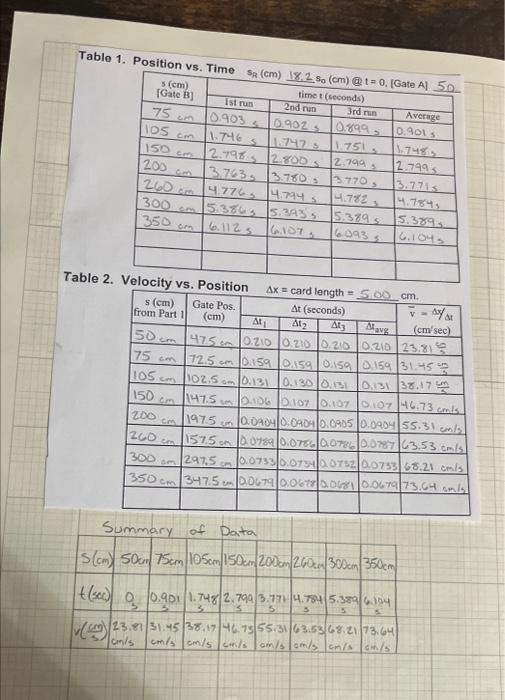 Table 1. Position vs. Time s_R (cm) 18.2 s_0 (cm) @ t = 0, [Gate A] 50
s (cm) [Gate B] time t (seconds)
1st run 2nd run 3rd run Average
75 cm 0.903 s 0.902 s 0.899 s 0.901 s
105 cm 1.746 s 1.747 s 1.751 s 1.748 s
150 cm 2.798 s 2.800 s 2.799 s 2.799 s
200 cm 3.763 s 3.780 s 3.770 s 3.771 s
260 cm 4.776 s 4.794 s 4.782 s 4.784 s
300 cm 5.386 s 5.393 s 5.389 s 5.389 s
350 cm 6.112 s 6.107 s 6.093 s 6.104 s
Table 2. Velocity vs. Position Δx = card length = 5.00 cm.
s (cm) from Part 1 Gate Pos. (cm) Δt (seconds) v̄ = Δx/Δt (cm/sec)
Δt1 Δt2 Δt3 Δtavg
50 cm 47.5 cm 0.210 0.210 0.210 0.210 23.81 cm/s
75 cm 72.5 cm 0.159 0.159 0.159 0.159 31.45 cm/s
105 cm 102.5 cm 0.131 0.130 0.131 0.131 38.17 cm/s
150 cm 147.5 cm 0.106 0.107 0.107 0.107 46.73 cm/s
200 cm 197.5 cm 0.0904 0.0904 0.0905 0.0904 55.31 cm/s
260 cm 157.5 cm 0.0789 0.0786 0.0786 0.0787 63.53 cm/s
300 cm 297.5 cm 0.0733 0.0734 0.0732 0.0733 68.21 cm/s
350 cm 347.5 cm 0.0679 0.0678 0.0681 0.0679 73.64 cm/s
Summary of Data
S(cm) 50cm 75cm 105cm 150cm 200cm 260cm 300cm 350cm
t(sec) 0 s 0.901 s 1.748 s 2.799 s 3.771 s 4.784 s 5.389 s 6.104 s
v(cm/s) 23.81 cm/s 31.45 cm/s 38.17 cm/s 46.73 cm/s 55.31 cm/s 63.53 cm/s 68.21 cm/s 73.64 cm/s